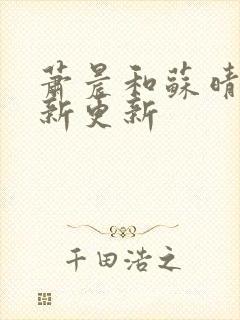 蕭晨和蘇晴
新更新
千田浩之